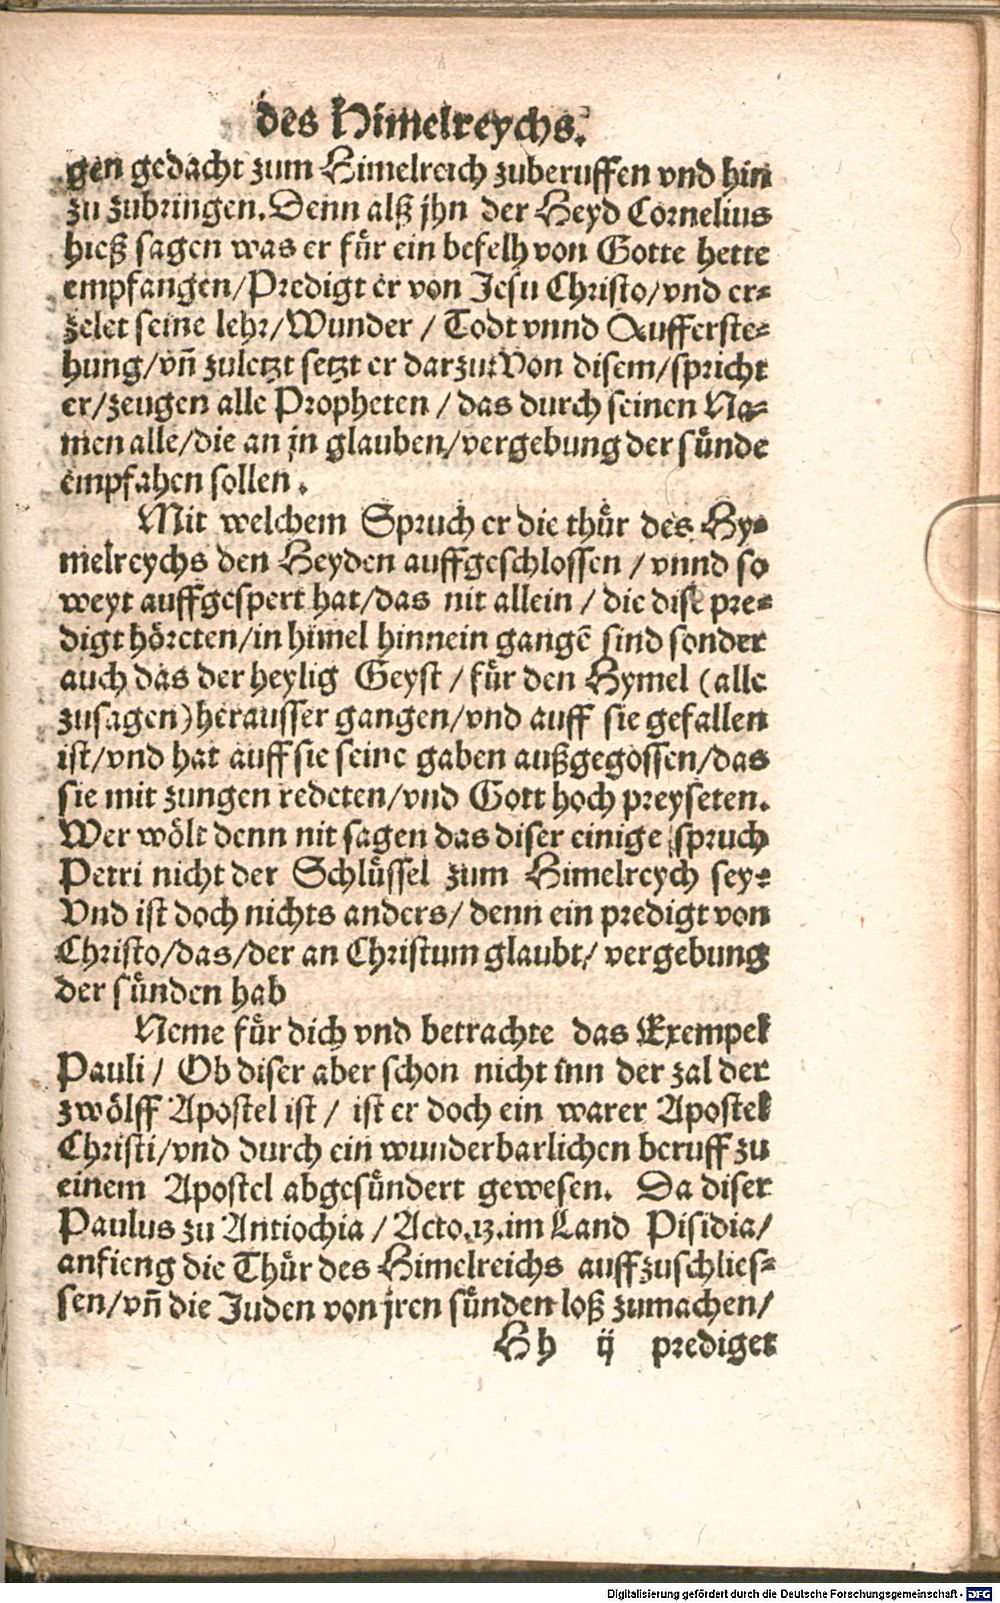 des Himelreychs.
gen gedacht zum Himelreich zuberuffen vnd hin
zu zubringen. Denn alß jhn der Heyd Cornelius
hieß sagen was er fuͤr ein befelh von Gotte hette
empfangen/Predigt er von Jesu Christo/vnd er⸗
zelet seine lehr/Wunder / Todt vnnd Aufferste⸗
hung/vñ zuletzt setzt er darzu: Von disem/spricht
er/zeugen alle Propheten / das durch seinen Na⸗
men alle/die an jn glauben/vergebung der suͤnde
empfahen sollen .
Mit welchem Spruch er die thuͤr des Hy⸗
melreychs den Heyden auffgeschlossen / vnnd so
weyt auffgespert hat/das nit allein / die dise pre⸗
digt hoͤreten/in himel hinnein gangẽ sind sonder
auch das der heylig Geyst / fuͤr den Hymel (alle
zusagen) herausser gangen/vnd auff sie gefallen
ist/vnd hat auff sie seine gaben außgegossen/das
sie mit zungen redeten/vnd Gott hoch preyseten.
Wer woͤlt denn nit sagen das diser einige spruch
Petri nicht der Schluͤssel zum Himelreych sey?
Vnd ist doch nichts anders/ denn ein predigt von
Christo/das/der an Christum glaubt/ vergebung
der suͤnden hab
Neme fuͤr dich vnd betrachte das Exempel
Pauli / Ob diser aber schon nicht inn der zal der
zwoͤlff Apostel ist / ist er doch ein warer Apostel
Christi/vnd durch ein wunderbarlichen beruff zu
einem Apostel abgesuͤndert gewesen. Da diser
Paulus zu Antiochia / Acto.13.im Land Pisidia/
anfieng die Thuͤr des Himelreichs auffzuschlies⸗
sen/vñ die Juden von jren suͤnden loß zumachen/
Hh ij prediget
Digitalisierung gefördert durch die Deutsche Forschungsgemeinschaft - DFG